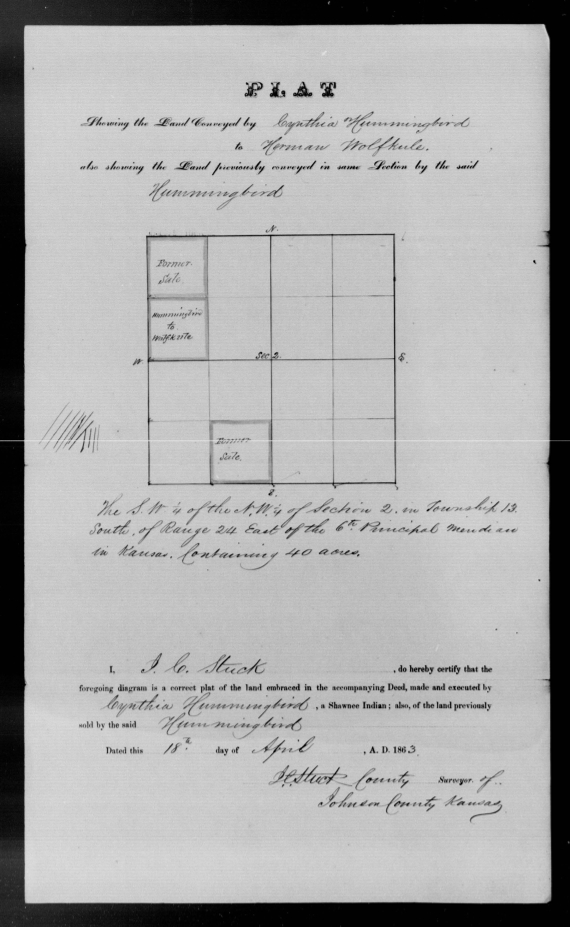 PLAT
Showing the Land Conveyed by Cynthia Hummingbird
to Herman Wolfkule.
also showing the Land previously conveyed in same Section by the said
Hummingbird
N.
Former
Sale.
Hummingbird
to
Wolfkule
W.
Sec 2.
E.
Former
Sale.
S.
The S.W ¼ of the N.W ¼ of Section 2. in Township 13
South, of Range 24 East of the 6th Principal Meridian
in Kansas. Containing 40 acres.
I, J. C. Stuck , do hereby certify that the
foregoing diagram is a correct plat of the land embraced in the accompanying Deed, made and executed by
Cynthia Hummingbird , a Shawnee Indian; also, of the land previously
sold by the said Hummingbird
Dated this 18th day of April , A. D. 1863.
J.C. Stuck County Surveyor. of
Johnson County Kansas